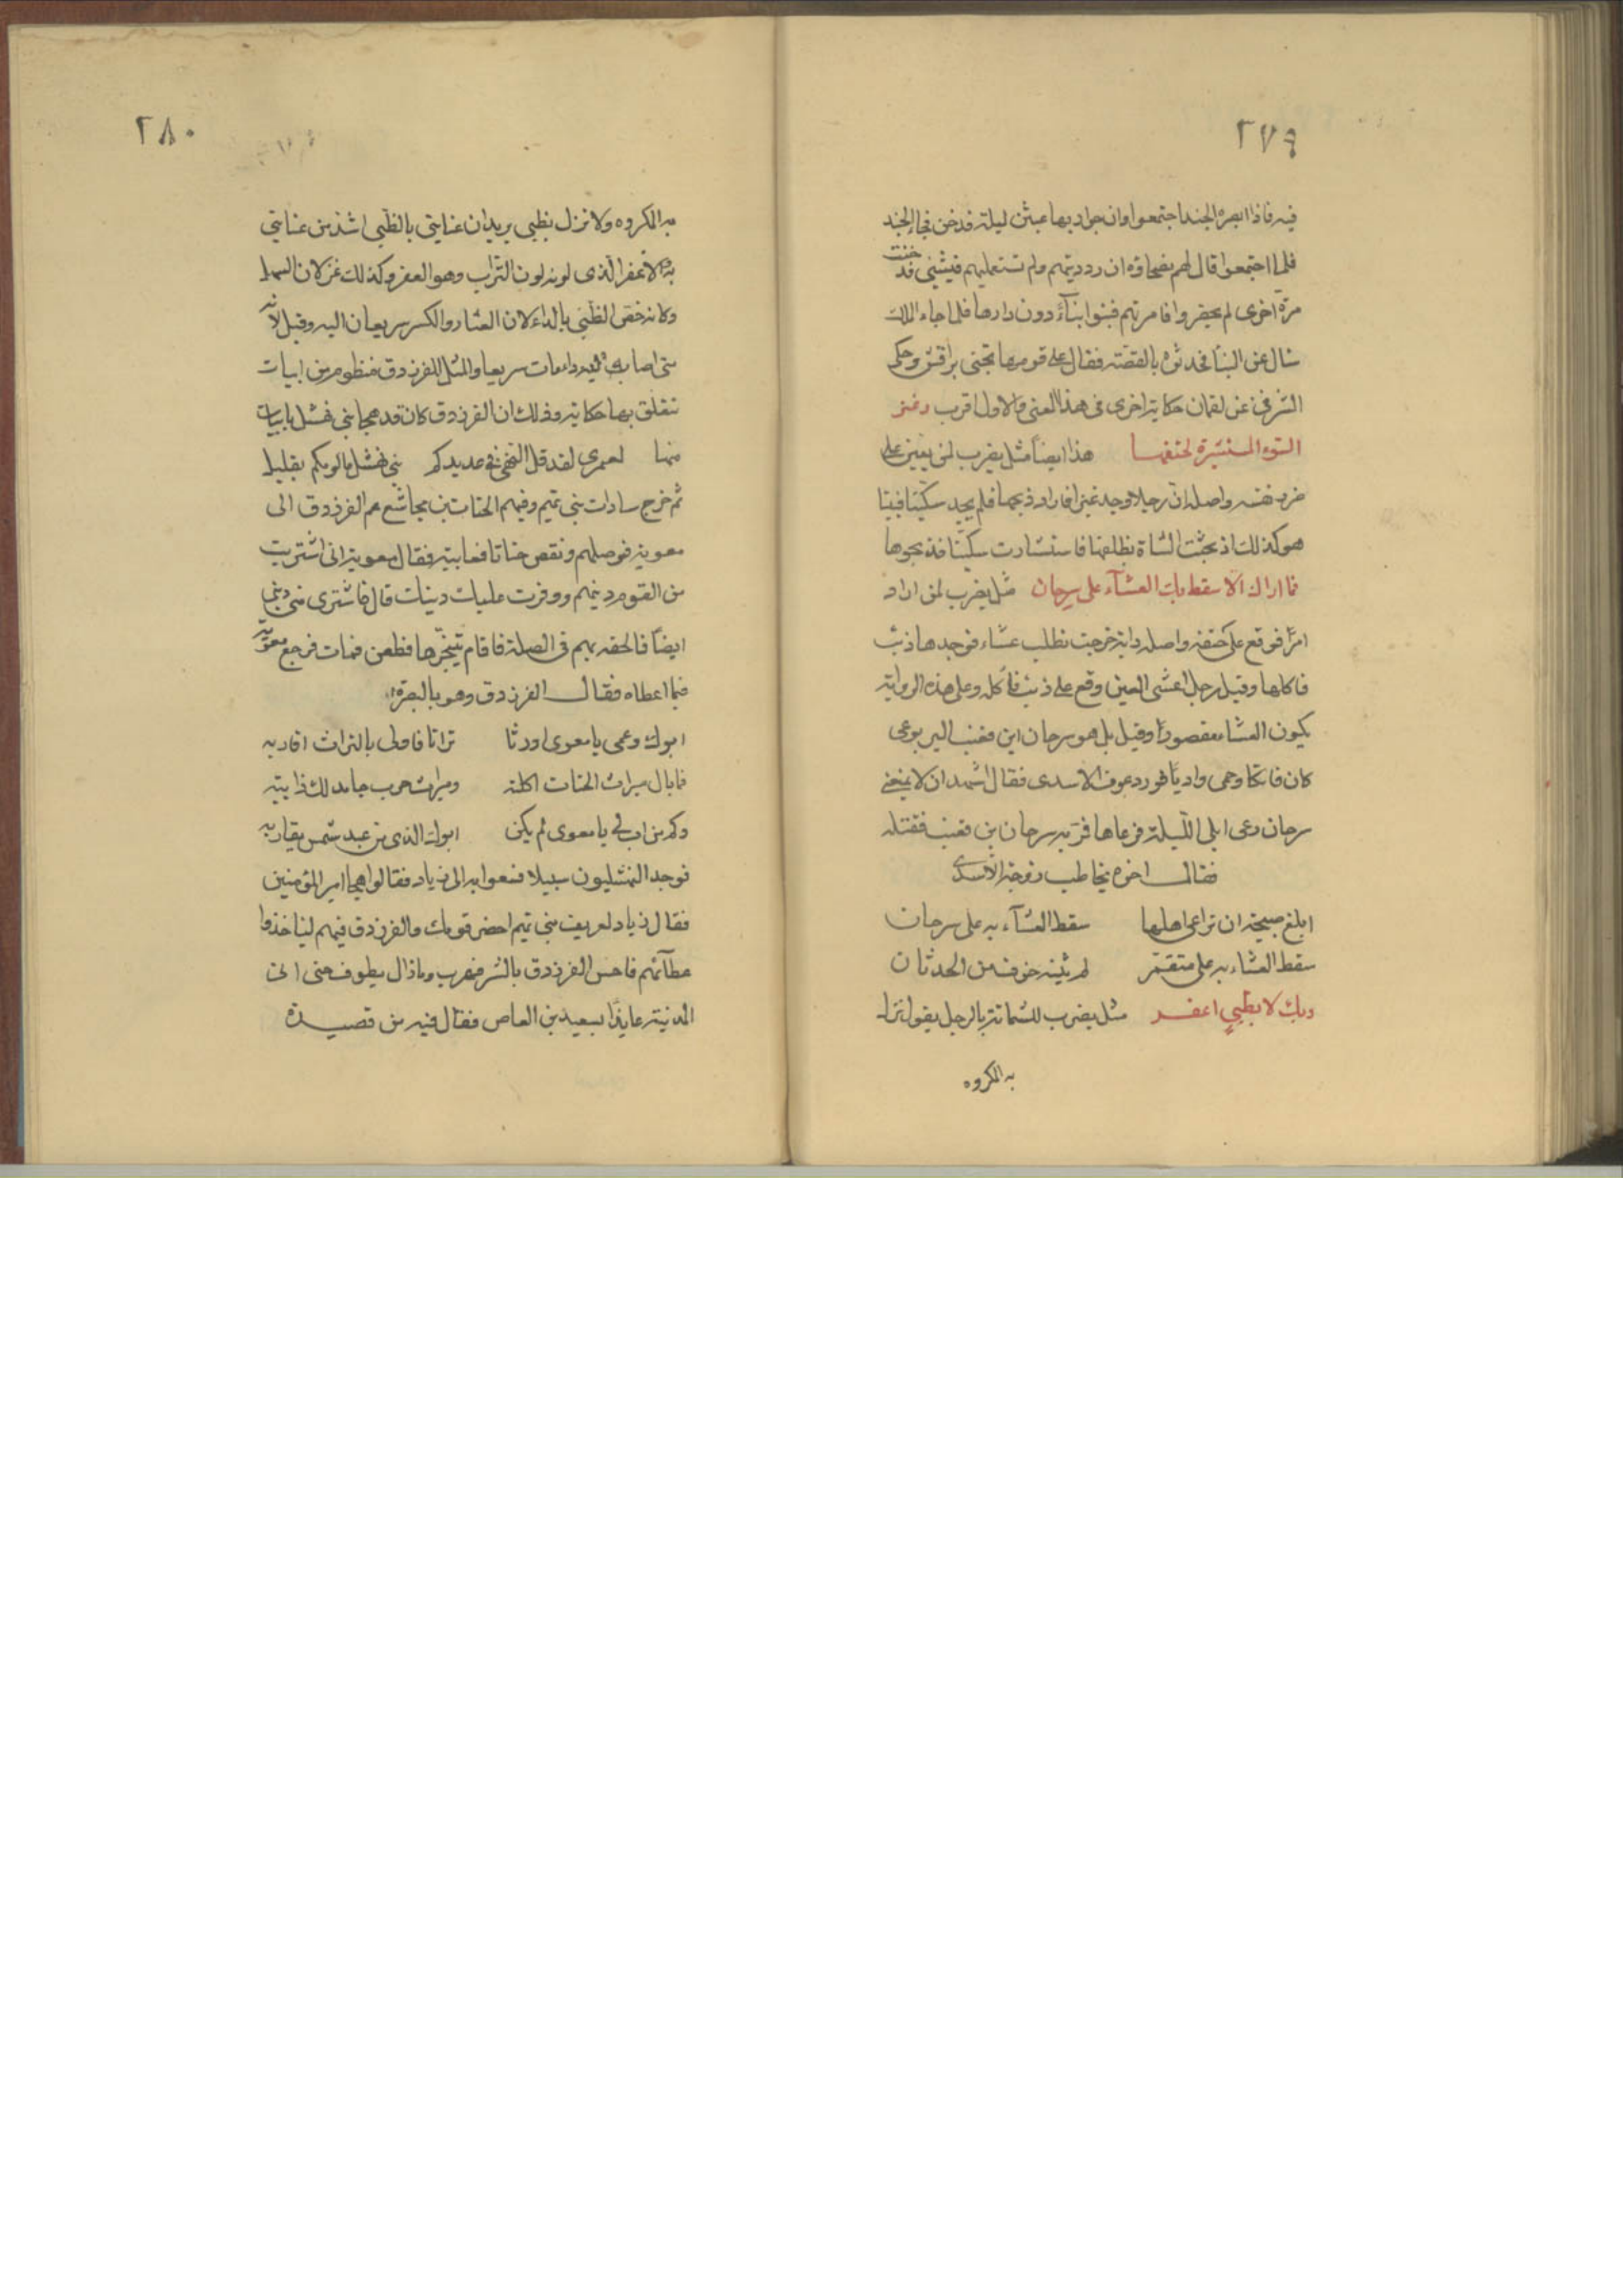 ٢٧٩
فيه فاذا ابصره الجند اجتمعوا وان جواريها عبثن ليلة فدخن فجاء الجند
فلما اجتمعوا قال لهم نصحاؤه ان رددتهم ولم تستعمليهم فيشئ قد دخنت
مرة اخرى لم يحضروا فامرتهم فبنوا بناءً دون دارها فلما جاء الملك
سال عن البنا فحدثوه بالقصة فقال على قومها تجنى براقش وحكى
الشرقى عن لقمان حكاية اخرى فى هذا المعنى والاول اقرب وعنز
السوء المستثيرة لحتفها هذا ايضاً مثل يضرب لمن يعين على
ضرر نفسه واصله ان رجلا وجد عنزا فاراد ذبحها فلم يجد سكينا فبينا
هو كذلك اذ بحثت الشاة بظلفها فاستشارت سكينا فذبحوها
فما اراك الا سقط بك العشآء على سرحان مثل يضرب لمن اراد
امرًا فوقع على حتفه واصله دابة خرجت تطلب عشاء فوجدها ذئب
فاكلها وقيل رجل اعشى العين وقع على ذئب فاكله وعلى هذه الرواية
يكون العشا مقصورًا وقيل بل هو سرحان ابن معتب اليربوعى
كان فاتكا وحمى واديًا فورد عوف الاسدى فقال اشهد ان لا يمنعنى
سرحان رعى ابلى الليلة فرعاها فمر به سرحان بن معتب فقتله
فقال اخوه يخاطب زوجة الاسدى
ابلغ صبيحة ان راعى اهلها سقط العشآء به على سرحان
سقط العشاء به على متقمر لم يثنه خوف من الحدثان
وبك لا بظبىٍ اعفر مثل يضرب للشماتة بالرجل يقول نزل
به المكروه
٢٨٠
به المكروه ولا نزل بظبى يريد ان عنايتى بالظبى اشد من عنايتى
به والاعفر الذى لونه لون التراب وهو العفر وكذلك غزلان السهل
وكانه خص الظبى بالداء لان العثار والكسر سريعان اليه وقيل لانه
متى اصابه داء مات سريعا والمثل للفرزدق منظوم من ابيات
تتعلق بها حكاية وذلك ان الفرزدق كان قد هجا بنى نهشل بابيات
منها لعمرى لقد قل النخى فى عديدكم بنى نهشل ما لومكم بقليل
ثم خرج سادات بنى تميم وفيهم الحتات بن مجاشع عم الفرزدق الى
معوية فوصلهم ونقص حتاتا فعاتبه فقال معوية انى اشتريت
من القوم دينهم ووفرت عليك دينك قال فاشترى منى دينى
ايضًا فالحقه بهم فى الصلة فاقام يتنجزها فطعن فمات فرجع معوية
فيما اعطاه فقال الفرزدق وهو بالبصرة
ابوك وعمى يا معوى اورثا تراثا فاولى بالتراث اقاربه
فما بال ميراث الحتات اكلته وميراث حرب جامد لك ذائبه
وكم من اب لى يا معوى لم يكن ابوك الذى من عبد شمس يقاربه
فوجد النهشليون سبيلا فسعوا به الى زياد فقالوا هجا امير المؤمنين
فقال زياد لعريف بنى تميم احضر قومك والفرزدق فيهم لياخذوا
عطآئهم فاحس الفرزدق بالشر فهرب وما زال يطوف حتى اتى
المدينة عايذًا بسعيد بن العاص فقال فيه من قصيدة